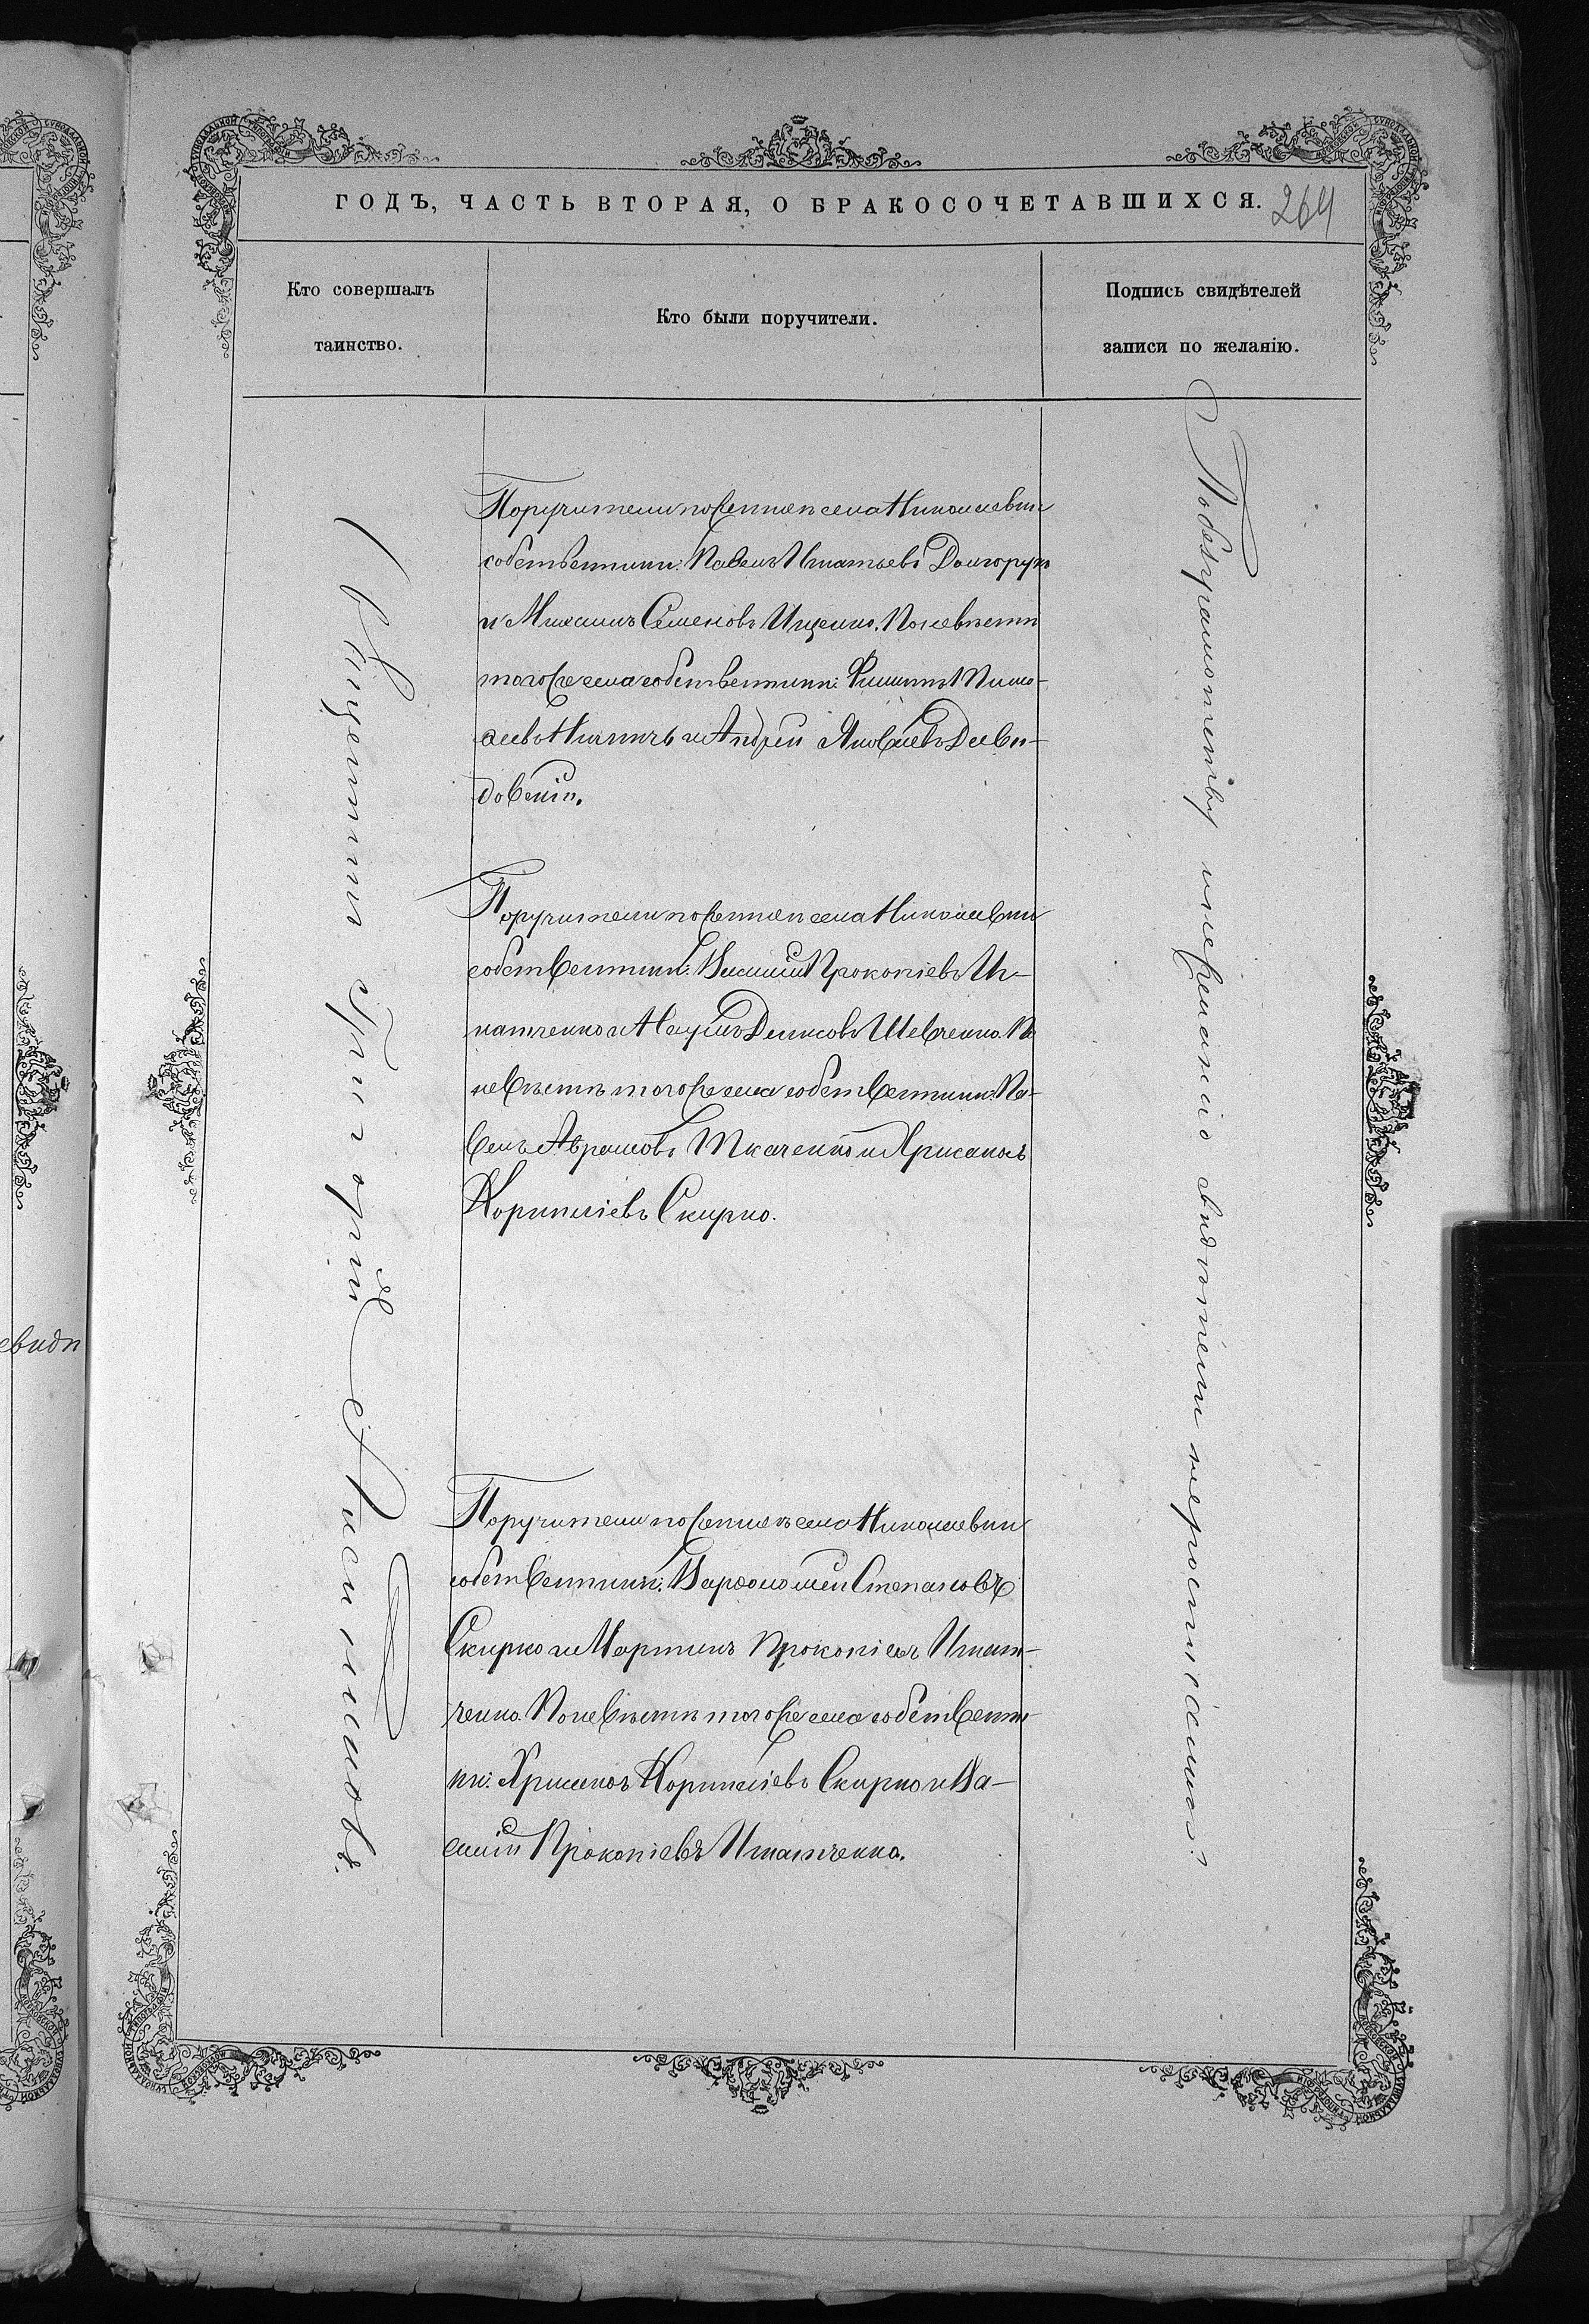 ГОДЪ, ЧАСТЬ ВТОРАЯ, О БРАКОСОЧЕТАВШИХСЯ. 264
Кто совершалъ
таинство.
Кто были поручители.
Подпись свидѣтелей
записи по желанію.
Священникъ Григорій
Поручители по женихѣ села Николаевки
собственники: Павелъ Игнатьевъ Долгорукъ
и Михаилъ Семеновъ Ищенко. По невѣстѣ
того же села собственники: Филиппъ
и Андрей Яковлевъ Деви-
довскій.
Поручители по женихѣ села Николаевки
собственники: Василій Прокопіевъ Иг-
натченко и Наумъ Денисовъ Шевченко. По
невѣстѣ того же села собственники: Па-
велъ Аврамовъ Ткаченко и Хрисанѳъ
Корниліевъ Скирко.
Поручители по женихѣ села Николаевки
собственники: Варѳоломей Степановъ
Скирко и Мартинъ Прокопіевъ Игнат-
ченко. По невѣстѣ того же села собственни-
ки: Хрисанѳъ Корниліевъ Скирко и Ва-
силій Прокопіевъ Игнатченко.
По безграмотству и нежеланію свидѣтели не росписались.
евидѣ